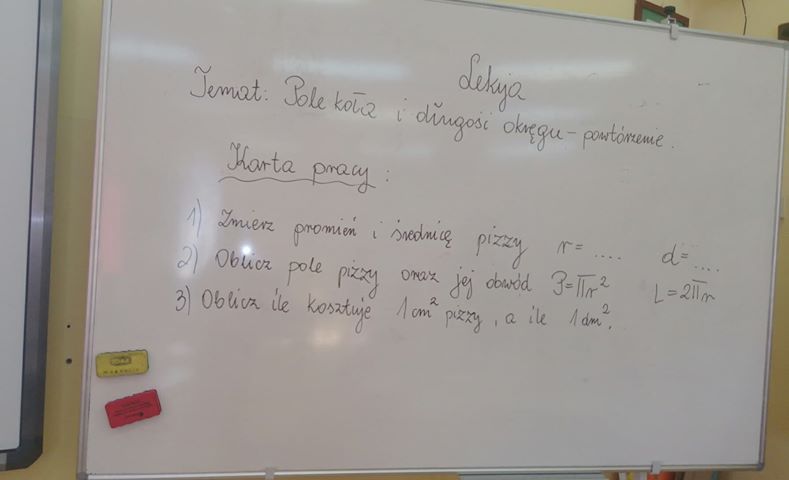 Lekcja
Temat: Pole koła i długość okręgu - powtórzenie.
Karta pracy:
1) Zmierz promień i średnicę pizzy r = .... d = ....
2) Oblicz pole pizzy oraz jej obwód P=πr² L=2πr
3) Oblicz ile kosztuje 1 cm² pizzy, a ile 1 dm².